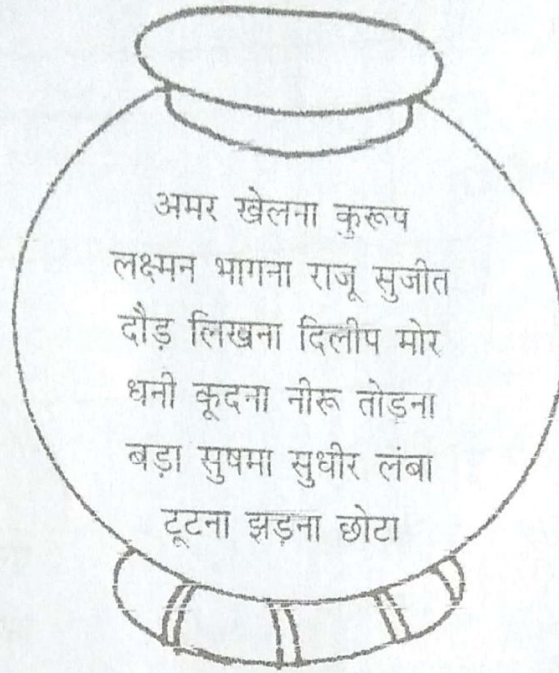 अमर खेलना कुरूप
लक्ष्मन भागना राजू सुजीत
दौड़ लिखना दिलीप मोर
धनी कूदना नीरू तोड़ना
बड़ा सुषमा सुधीर लंबा
टूटना झड़ना छोटा